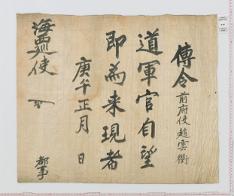 傳令 前府使趙雲衢
道軍官自望
即為来現者
庚午正月 日
都事
海觀使